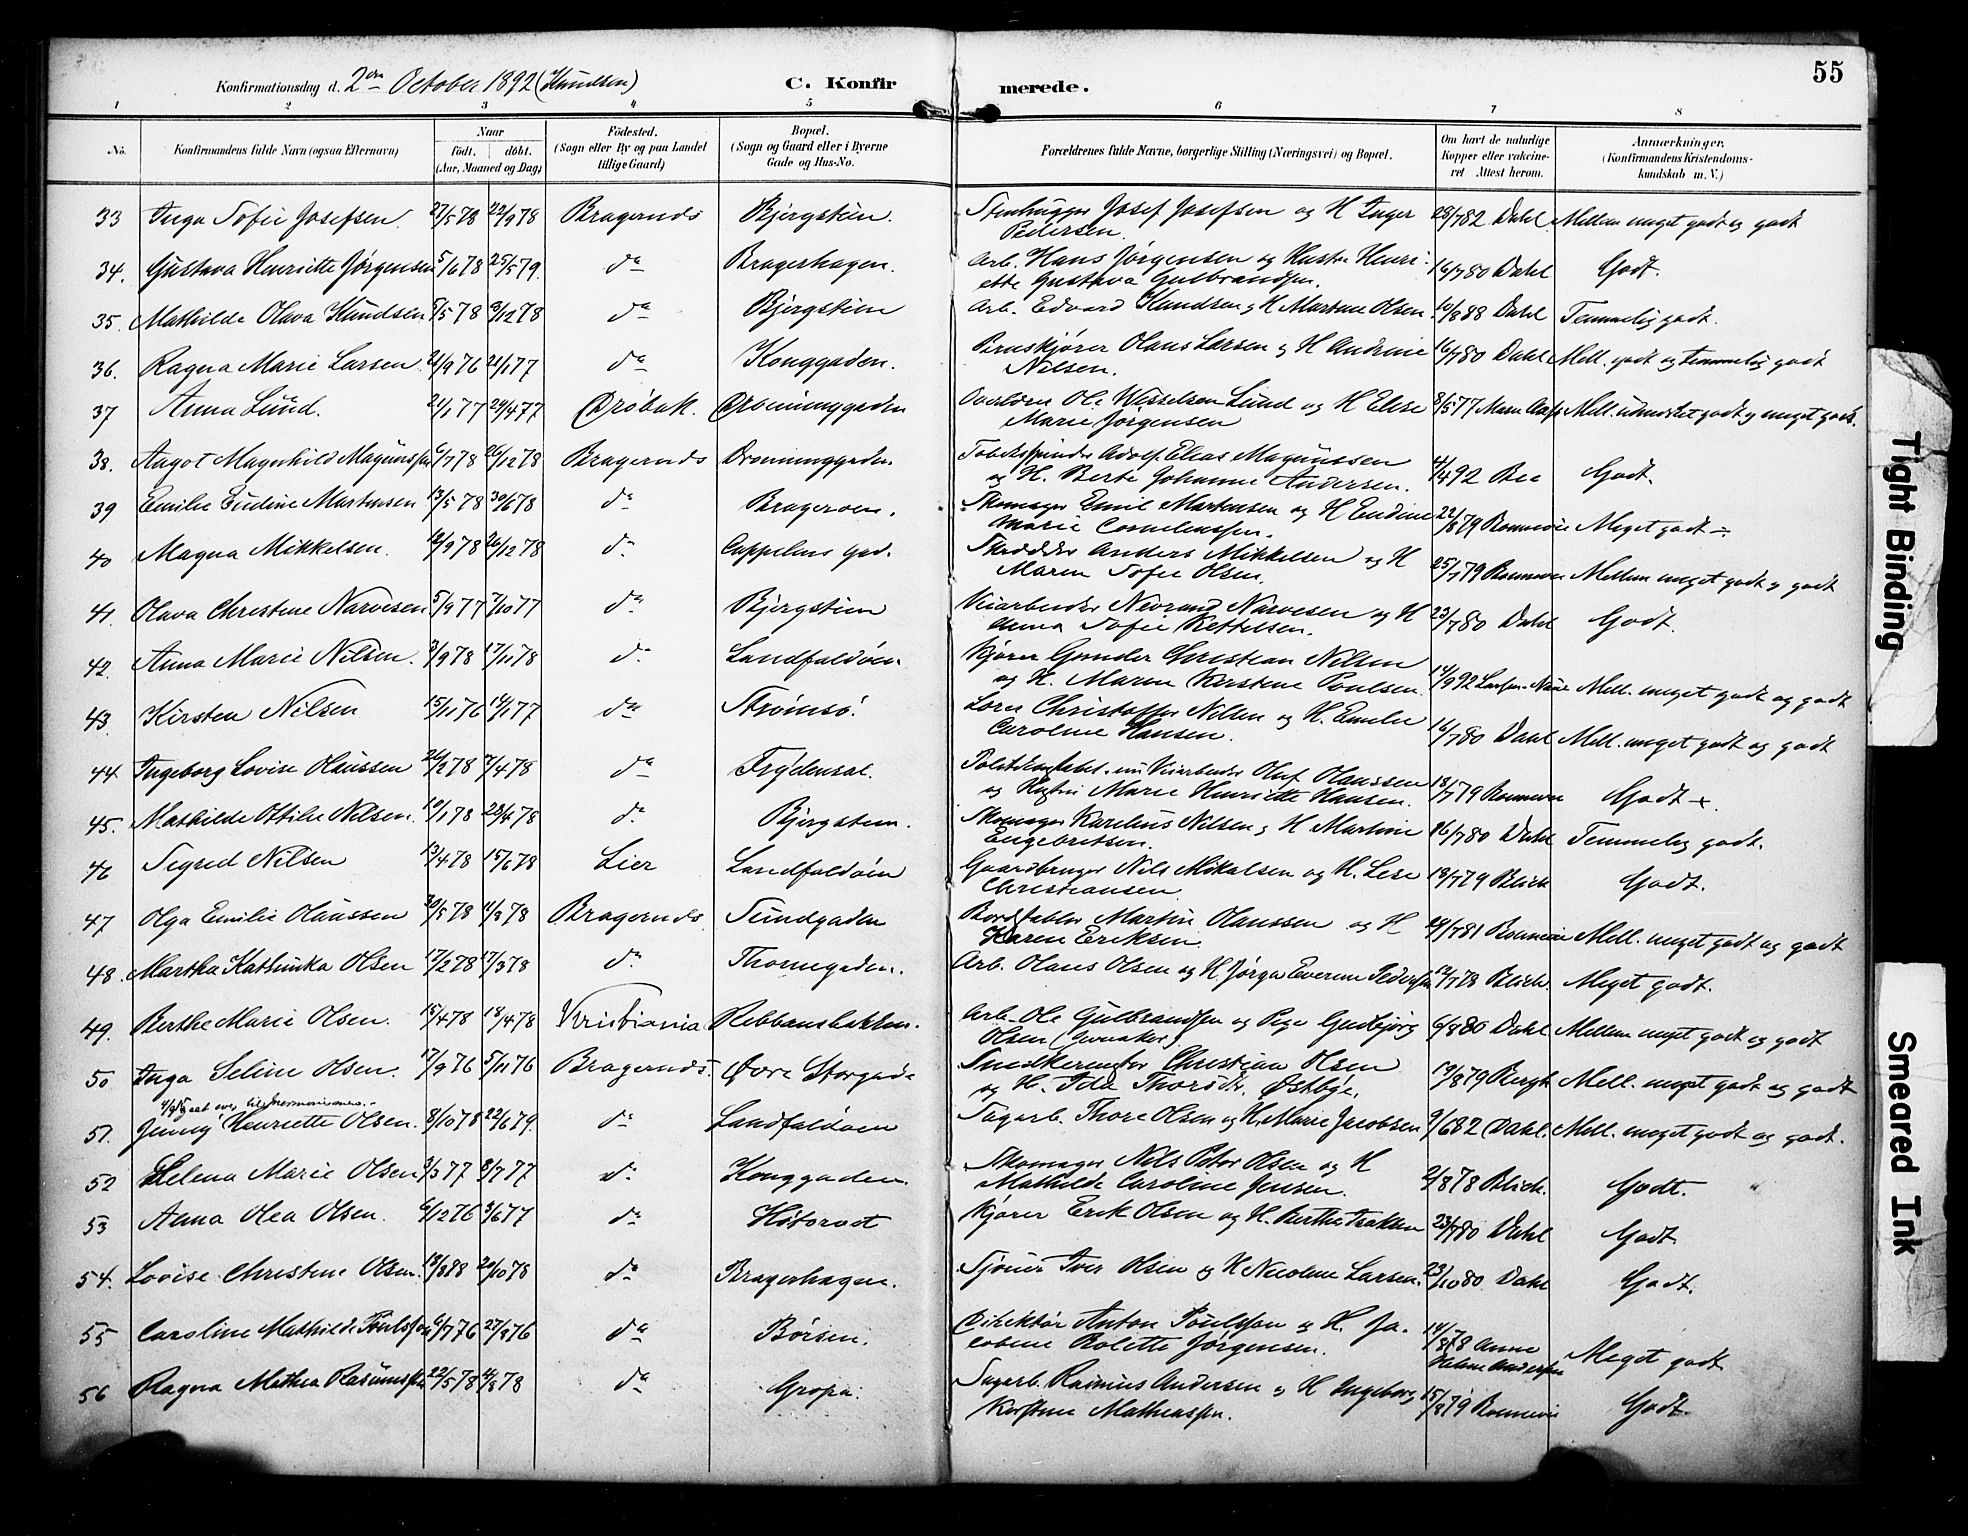 55
Konfirmationsdag d. 2den October 1892 (Knudsen) C. Konfirmerede.
1 2 3 4 5 6 7 8
No. Konfirmandens fulde Navn (ogsaa Efternavn) Naar födt. döbt. (Aar, Maaned og Dag) Födested. (Sogn eller By og paa Landet tillige Gaard) Bopæl. (Sogn og Gaard eller i Byerne Gade og Hus-No. Forældrenes fulde Navne, borgerlige Stilling (Næringsvei) og Bopæl. Om havt de naturlige Kopper eller vakcineret Attest herom. Anmærkninger. (Konfirmandens Kristendomskundskab m. V.)
33 Inga Sofie Josefsen 27/5 78 22/9 78 Bragernæs Bjergstien. Stenhugger Josef Josefsen og H Inger 28/7 82 Dahl Mellem meget godt og godt
Pedersen.
34. Gustava Henriette Jørgensen 5/6 78 25/5 79. do Bragerhagen. Arb. Hans Jørgensen og Hustru Henri- 16/7 80 Dahl Godt.
ette Gustava Gulbrandsen.
35. Mathilde Olava Knudsen 5/5 78 8/12 78 do Bjergstien Arb. Edvard Knudsen og H Martine Olsen. 10/8 88 Dahl Temmelig godt.
36. Ragna Marie Larsen 21/9 76 21/1 77 do Konggaden. Bruskjører Olaus Larsen og H Andrine 16/7 80 Dahl Mell. godt og temmelig godt
Nilsen.
37 Anna Lund. 21/1 77 24/4 77 Drøbak. Dronninggaden Ole Wesselsen Lund og H Elise 8/5 77 Mell. udmerket godt og meget godt.
Marie Jørgensen
38. Aagot Magnhild Magnussen 6/7 78 26/12 78 Bragernæs Dronninggaden. Adolf Elias Magnussen 4/4 92 Godt.
og H. Berte Johanne Andersen.
39 Emilie Eudine Martensen 13/5 78 30/6 78 do Brageroen. Skomager Emil Martensen og H Eudine 22/8 79 Meget godt ÷
Marie Corneliussen.
40 Magna Mikkelsen. 12/9 78 26/12 78 do Cappelens gad. Skrædder Anders Mikkelsen og H 25/7 79 Mellem meget godt og godt
Maren Sofie Olsen.
41. Olava Christine Narvesen 5/9 77 7/10 77 do Bjergstien Veiarbeider Narvesen og H 23/7 80 Dahl Godt.
Anna Sofie Kettelsen.
42. Anna Marie Nilsen. 3/9 78 17/11 78 do Landfaldøen Kjører Gunder Christian Nilsen 14/9 92 Mell. meget godt og godt
og H. Maren Kirstine Poulsen.
43. Kirsten Nilsen 15/11 76 14/1 77 do Strømsø. Christoffer Nilsen og H. Emilie 16/7 80 Dahl Mell. meget godt og godt
Caroline Hansen.
44 Ingeborg Lovise Olaussen 26/2 78 7/4 78 do Frydensal. nu Veiarbeider Oluf Olaussen 18/7 79 Godt
og Hustru Marie Henriette Hansen.
45. Mathilde Ottilie Nilsen. 10/1 78 23/4 78 do Bjergstien. Skomager Karelius Nilsen og H Martine 16/7 80 Dahl Temmelig godt.
Engebretsen.
46 Sigred Nilsen 13/4 78 15/6 78 Lier Landfaldøen Gaardbruger Nils Mikalsen og H. Lise 13/7 79 Blich Godt.
Christiansen
47 Olga Emilie Olaussen 20/5 78 11/8 78 Bragernæs. Sundgaden Martin Olaussen og H 19/7 81 Mell. meget godt og godt
Karen Eriksen.
48. Martha Kathinka Olsen 12/2 78 17/3 78 do Thornegaden. Arb. Olaus Olsen og H Jørga Everine Pedersen 12/7 78 Blich. Meget godt.
49. Berthe Marie Olsen. 15/4 78 18/4 78 Kristiania Rebbansbakken. Arb. Ole Gulbrandsen og Pige Gudbjørg 6/8 80 Dahl Mellem meget godt og godt
Olsen
50 Inga Seline Olsen. 17/9 76 5/11 76 Bragernæs. Øvre Storgade Snedkermester Christian Olsen 19/8 79 Mell. meget godt og godt
og H. Ida Thorsdr. Østbye.
gaaet over til Mormonerne.
51. Jenny Henriette Olsen. 8/10 78 22/6 79. do Landfaldøen Sagarb. Thore Olsen og H. Marie Jacobsen 9/6 82 Dahl. Mell. meget godt og godt.
52 Helena Marie Olsen 3/3 77 8/7 77 do Konggaden. Skomager Nils Peter Olsen og H 2/8 78 Blich. Godt.
Mathilde Caroline Jensen.
53 Anna Olea Olsen. 6/12 76 3/6 77 do Høtorvet Kjører Erik Olsen og H. Berthe Isaksen 23/7 80 Dahl Godt
54. Lovise Christine Olsen. 18/8 88 20/10 78 do Bragerhagen. Iver Olsen og H Nicoline Larsen. 23/10 80 Dahl Godt.
55 Caroline Mathilde Poulsson 6/7 76 27/8 76 do Børsen. Direktør Anton Poulsson og H. Ja- 14/8 78 Anne Meget godt
cobine Bolette Jørgensen. Helene Andersen
56 Ragna Mathea Rasmussen 22/5 78 4/8 78 do Gropa. Sagarb. Rasmus Andersen og H Ingeborg 15/8 79 Godt.
Kirstine Mathiassen.
Tight Binding
Smeared Ink